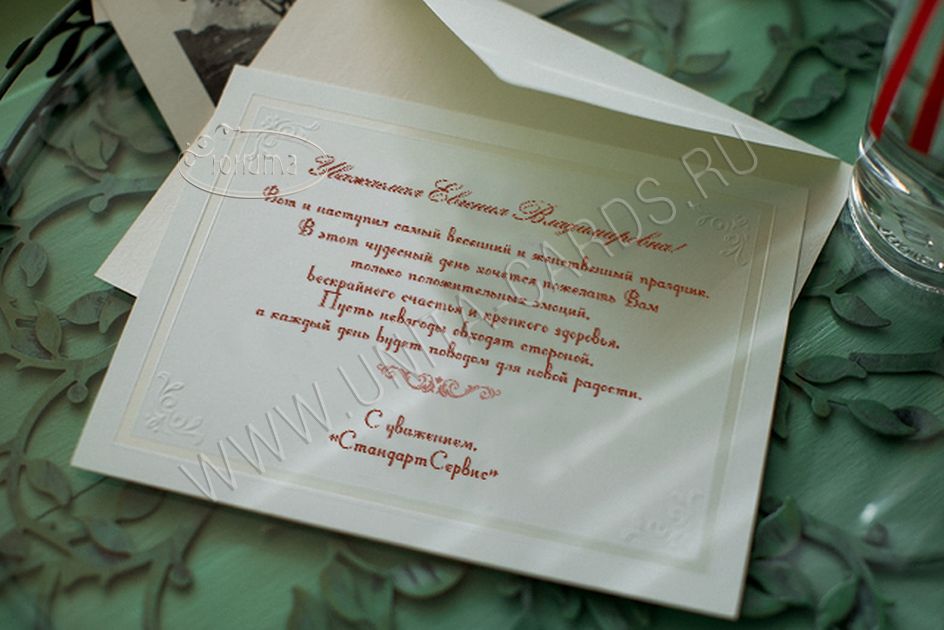 Юнита
Уважаемая Евгения Владимировна!
Вот и наступил самый весенний и женственный праздник.
В этот чудесный день хочется пожелать Вам
только положительных эмоций,
бескрайнего счастья и крепкого здоровья.
Пусть невзгоды обходят стороной,
а каждый день будет поводом для новой радости.
С уважением,
"СтандартСервис"
WWW.UNITA-CARDS.RU